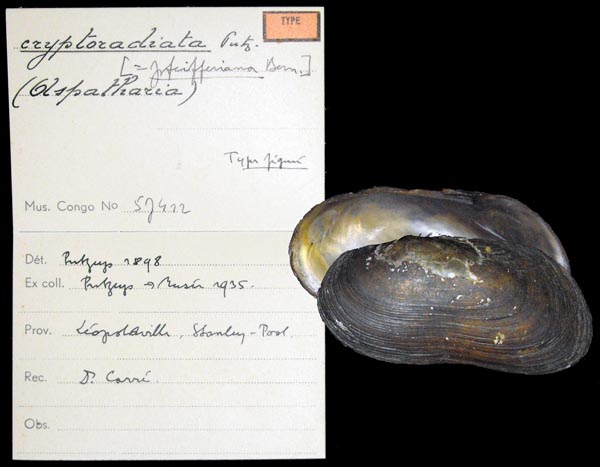 TYPE
cryptoradiata Putz.
[= pfeifferiana Bern.]
(Aspatharia)
Type figuré
Mus. Congo No 57422
Dét. Putzeys 1898
Ex coll. Putzeys → Musée 1935.
Prov. Léopoldville, Stanley-Pool
Rec. Dr. Carré.
Obs.